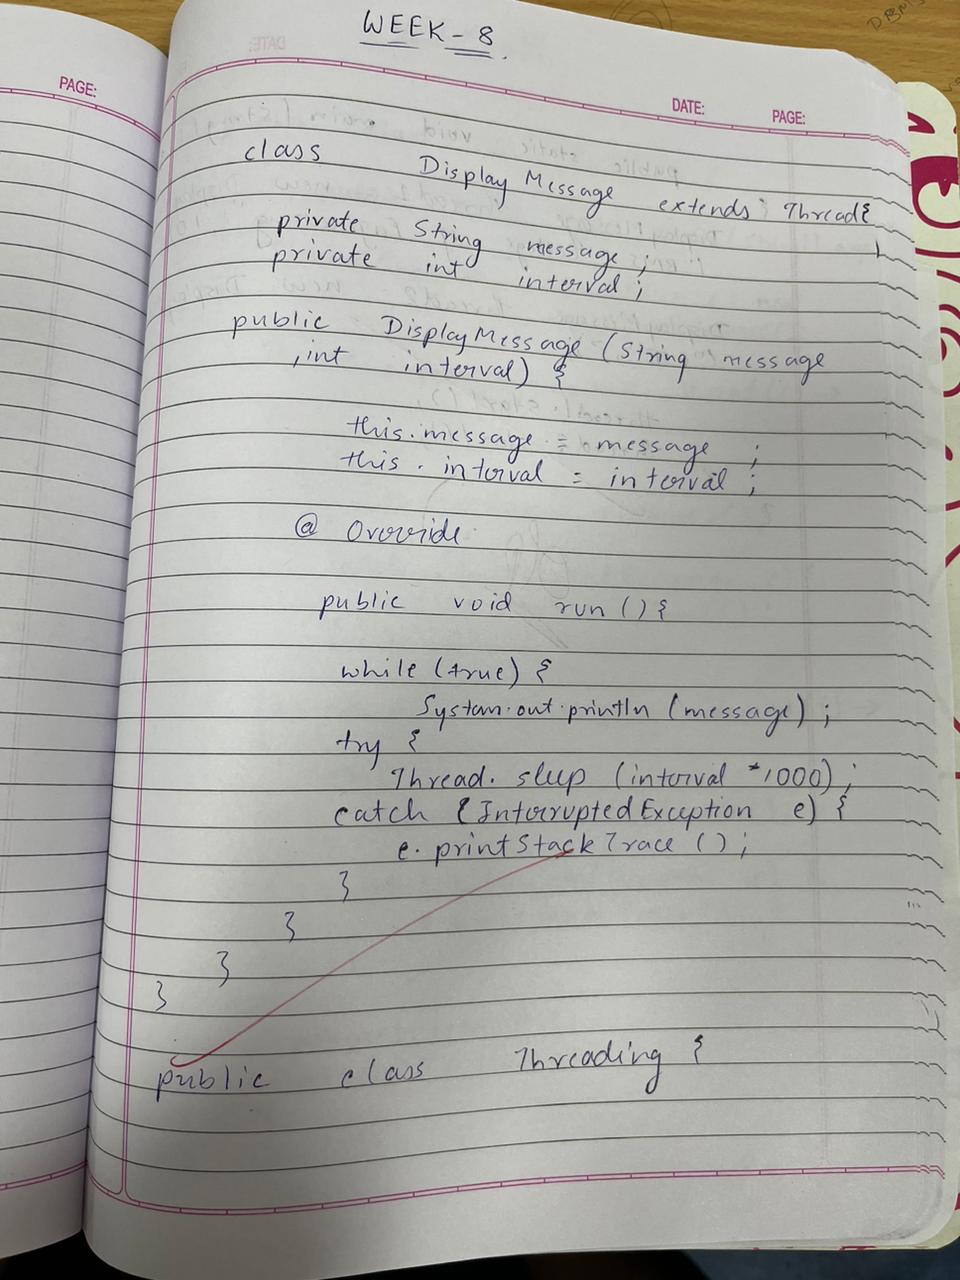 WEEK - 8.
PAGE:
DATE: PAGE:
class Display Message extends Thread{
private String message;
private int interval;
public DisplayMessage (String message
,int interval) {
this.message = message ;
this . interval = interval ;
@ Override
public void run () {
while (true) {
System.out.println (message) ;
try {
Thread. sleep (interval *1000) ;
catch (InterruptedException e) {
e. printStackTrace () ;
}
}
}
}
public class Threading {